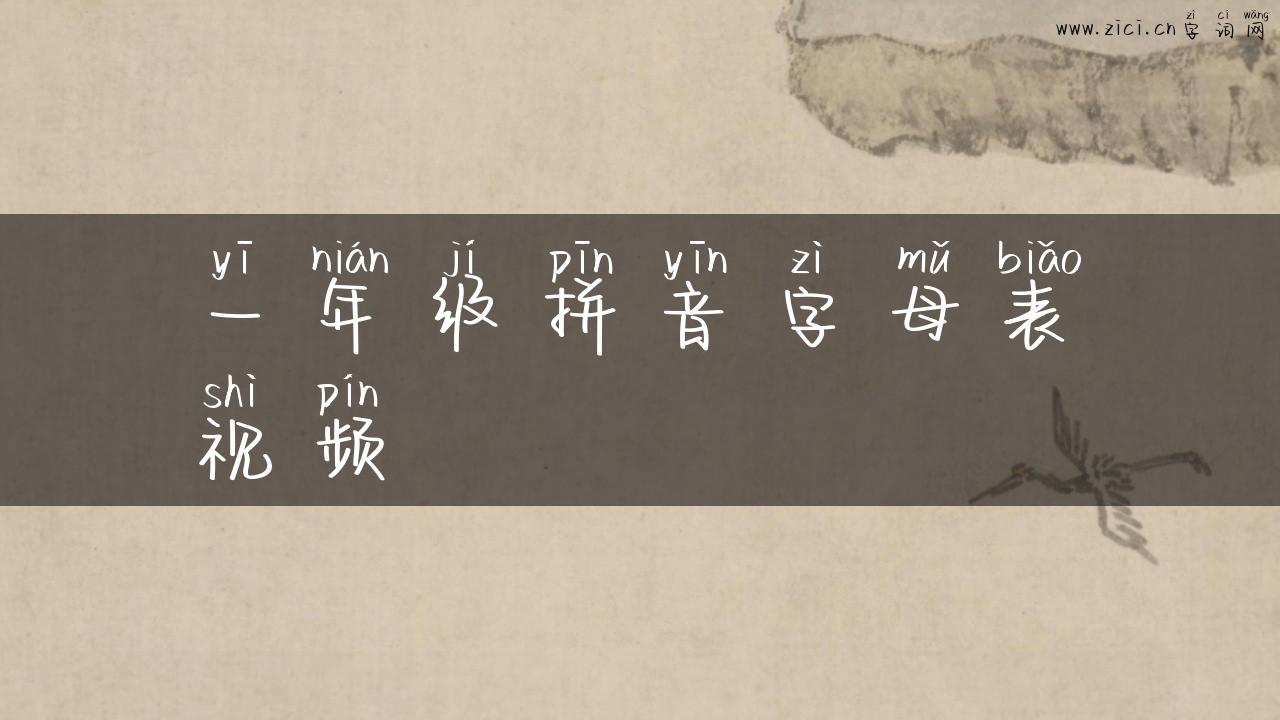 zì cí wǎng
www.zici.cn 字词网
yī nián jí pīn yīn zì mǔ biǎo
一年级拼音字母表
shì pín
视频